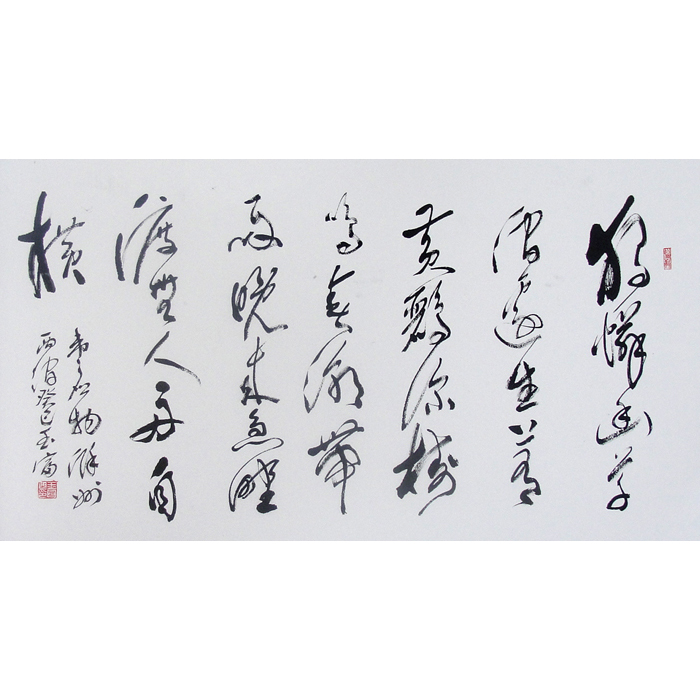 獨憐幽草
澗邊生上有
黄鸝深樹
鳴春潮帶
雨晚來急野
渡無人舟自
橫
韋應物滁州
西澗癸巳玉富